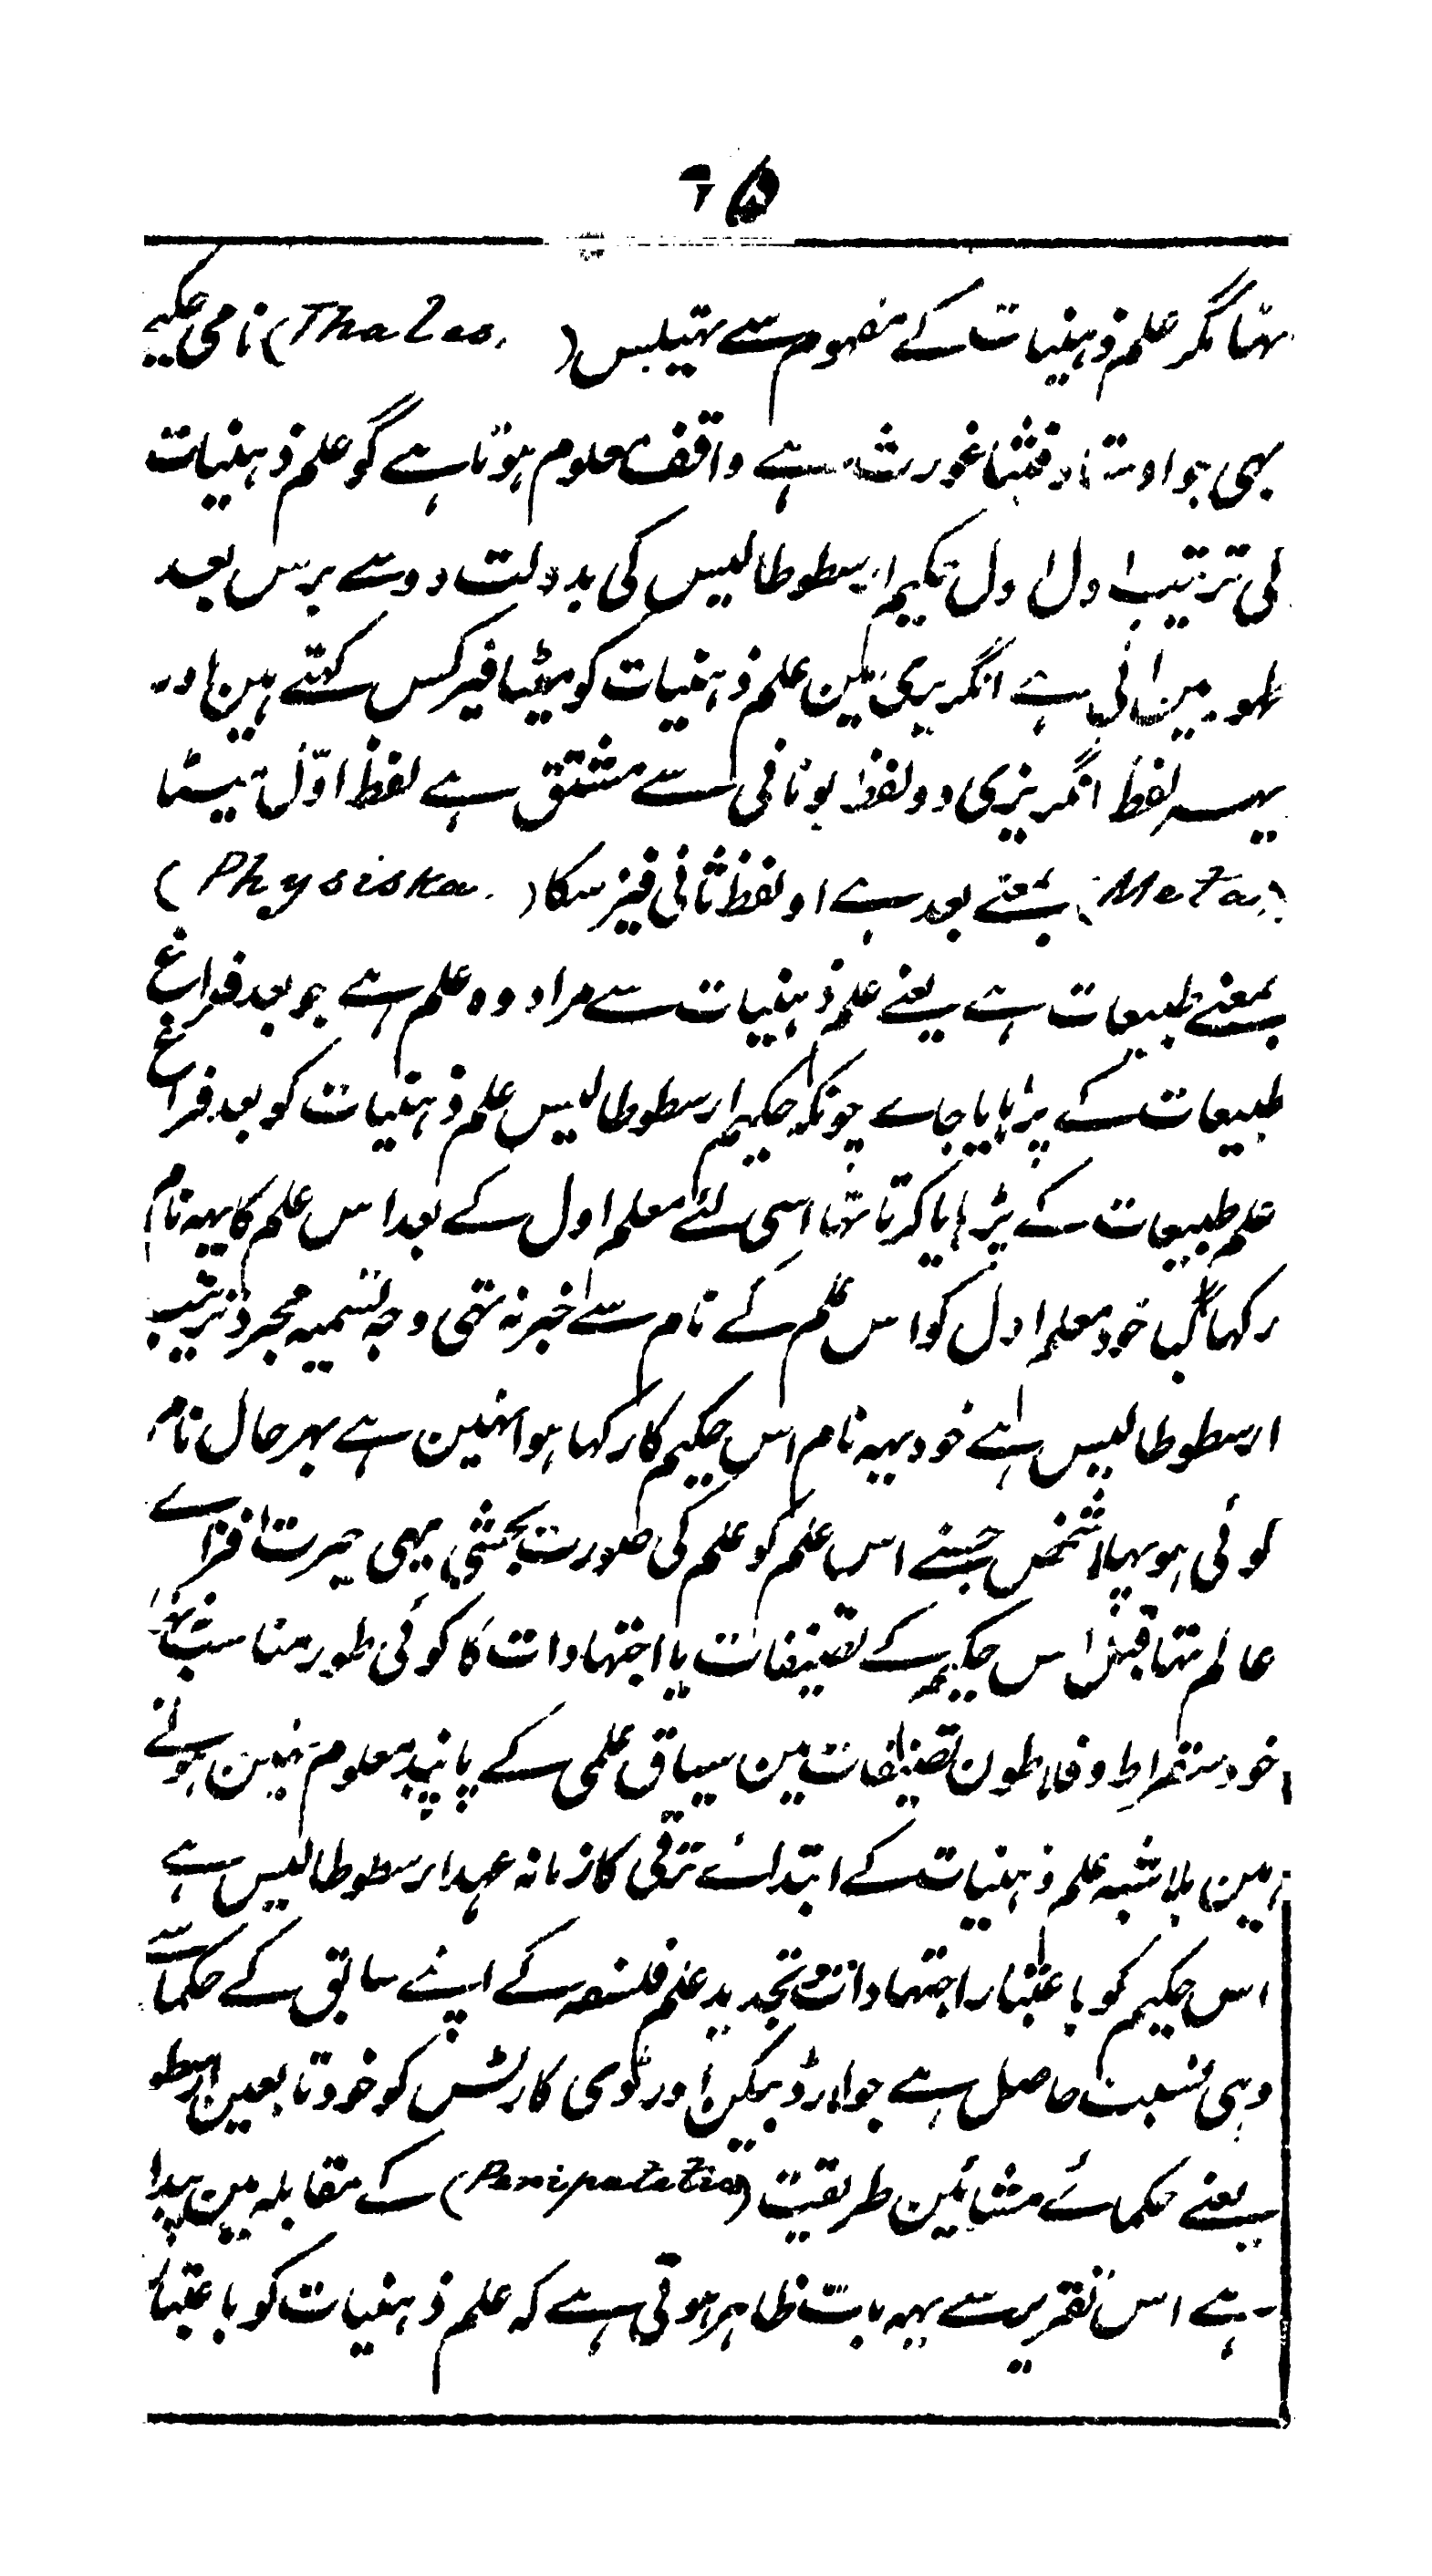 ۶۵
تہا مگر علم ذہنیات کے مفہوم سے تہیلیس (Thales.) نامی حکیم
بہی جو اوستاد فیثاغورث ہے واقف معلوم ہوتا ہے گو علم ذہنیات
کی ترتیب اول اول حکیم ارسطوطالیس کی بدولت دو سے برس بعد
ظہور مین آئی ہے انگریزی مین علم ذہنیات کو میٹیافیزکس کہتے ہین اور
یہہ لفظ انگریزی دو لفظ یونانی سے مشتق ہے لفظ اوّل میٹا
(Meta.) بمعنے بعد ہے اور لفظ ثانی فیزسکا (Physiska.)
بمعنے طبیعات ہے یعنے علم ذہنیات سے مراد وہ علم ہے جو بعد فراغ
طبیعات کے پڑہایا جاے چونکہ حکیم ارسطوطالیس علم ذہنیات کو بعد فراغ
علم طبیعات کے پڑہایا کرتا تہا اسی لئے معلم اول کے بعد اس علم کا یہہ نام
رکہا گیا خود معلم اول کو اس علم کے نام سے خبر نہ تہی وجہ تسمیہ مجرد ترتیب
ارسطوطالیس ہے خود یہہ نام اس حکیم کا رکہا ہوا نہین ہے بہر حال نام
کوئی ہو پہلا شخص جسنے اس علم کو علم کی صورت بخشی یہی حیرت افزاے
عالم تہا قبل اس حکیم کے تصنیفات یا اجتہادات کا کوئی طور مناسب نتہا
خود سقراط و فلاطون تصنیفات مین سیاق علمی کے پابند معلوم نہین ہوتے
ہین بلاشبہ علم ذہنیات کے ابتدائے ترقی کا زمانہ عہد ارسطوطالیس ہے
اس حکیم کو باعتبار اجتہادات و تجدید علم فلسفہ کے اپنے سابق کے حکما سے
وہی نسبت حاصل ہے جو لارڈ بیکن اور ڈی کارٹس کو خود تابعین ارسطو
یعنے حکمائے مشائین طریقیت (Peripatetic) کے مقابلہ مین پیدا
ہے اس تقریر سے یہہ بات ظاہر ہوتی ہے کہ علم ذہنیات کو باعتبار